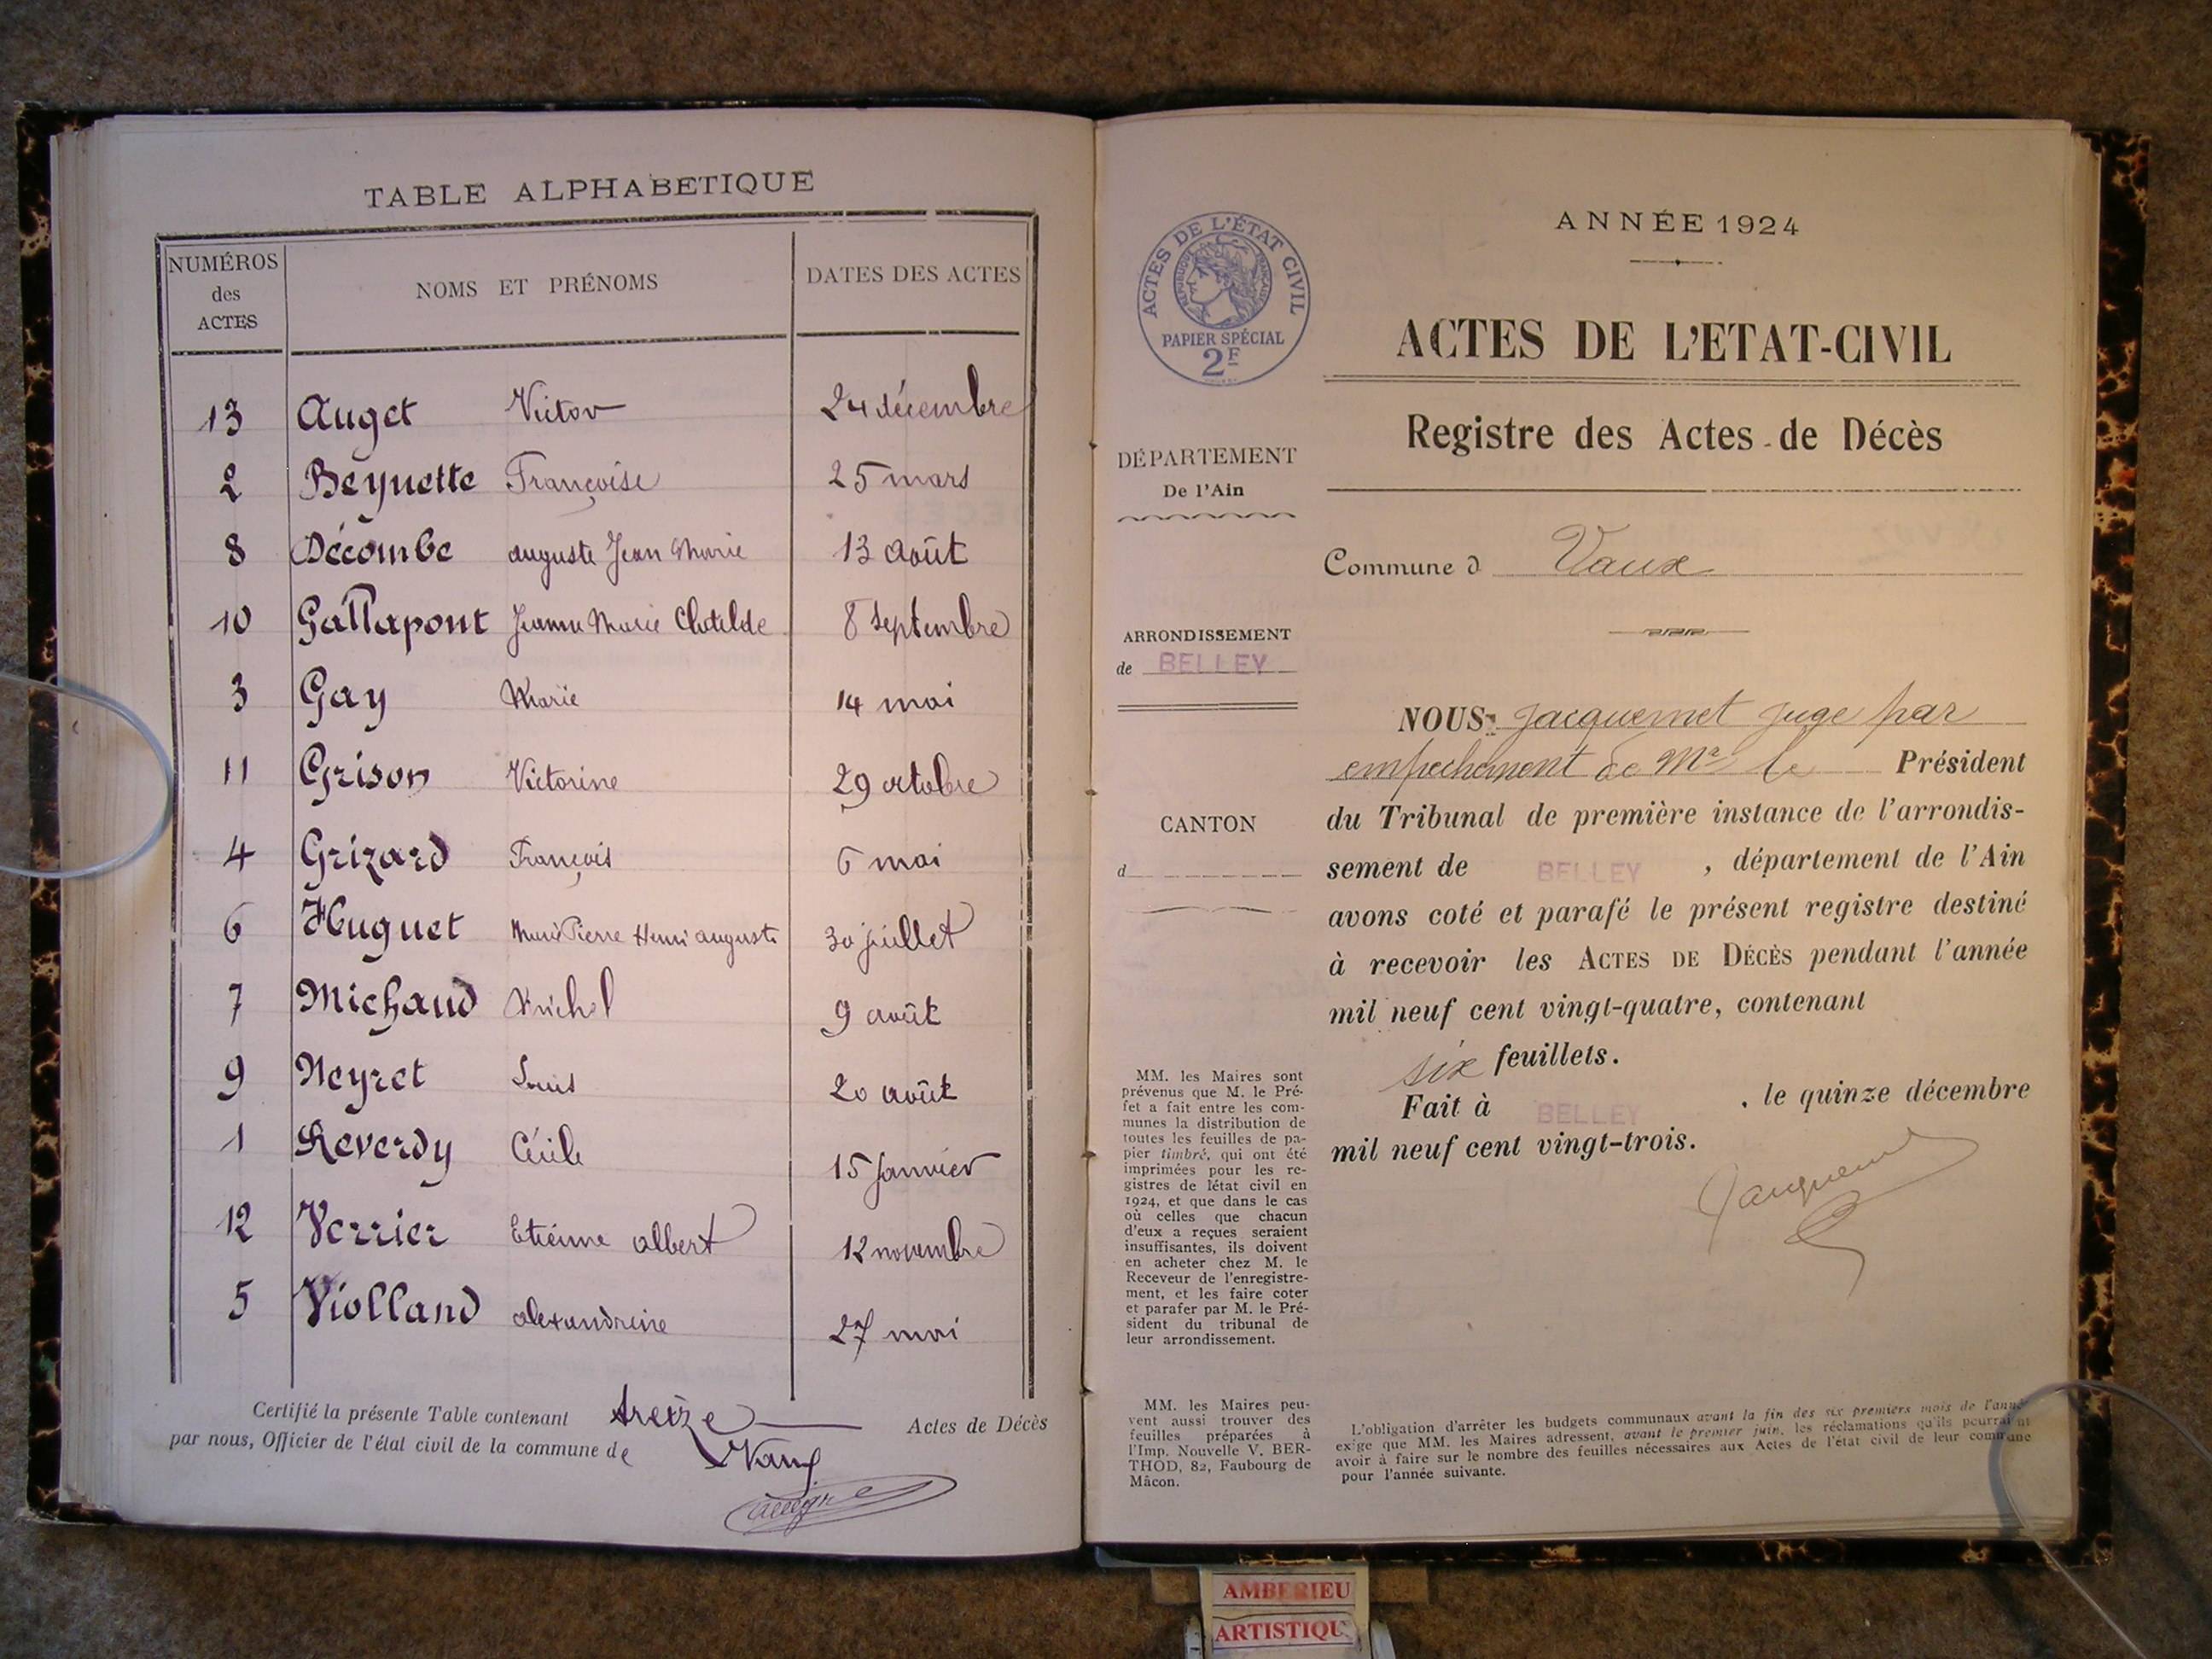 TABLE ALPHABETIQUE
NUMÉROS des ACTES
NOMS ET PRÉNOMS
DATES DES ACTES
13 Auget Victor 24 décembre
2 Beynette Françoise 25 mars
8 Décombe auguste Jean Marie 13 août
10 Gallapont Jeanne Marie Clotilde 8 septembre
3 Gay Marie 14 mai
11 Grison Victorine 29 octobre
4 Grizard François 6 mai
6 Huguet Marie Pierre Henri auguste 30 juillet
7 Michaud Michel 9 août
9 Neyret Louis 20 août
1 Reverdy Cécile 15 Janvier
12 Verrier Etienne albert 12 novembre
5 Violland alexandrine 27 mai
Certifié la présente Table contenant treize Actes de Décès
par nous, Officier de l'état civil de la commune de Vaux
ACTES DE L'ÉTAT CIVIL
RÉPUBLIQUE FRANÇAISE
PAPIER SPÉCIAL
2F
DÉPARTEMENT
De l'Ain
ARRONDISSEMENT
de BELLEY
CANTON
d
MM. les Maires sont
prévenus que M. le Pré-
fet a fait entre les com-
munes la distribution de
toutes les feuilles de pa-
pier timbré, qui ont été
imprimées pour les re-
gistres de l'état civil en
1924, et que dans le cas
où celles que chacun
d'eux a reçues seraient
insuffisantes, ils doivent
en acheter chez M. le
Receveur de l'enregistre-
ment, et les faire coter
et parafer par M. le Pré-
sident du tribunal de
leur arrondissement.
MM. les Maires peu-
vent aussi trouver des
feuilles préparées à
l'Imp. Nouvelle V. BER-
THOD, 82, Faubourg de
Mâcon.
ANNÉE 1924
ACTES DE L'ETAT-CIVIL
Registre des Actes de Décès
Commune d Vaux
NOUS Jacquemet juge par
empechement de Mr le Président
du Tribunal de première instance de l'arrondis-
sement de BELLEY, département de l'Ain
avons coté et parafé le présent registre destiné
à recevoir les ACTES DE DÉCÈS pendant l'année
mil neuf cent vingt-quatre, contenant
six feuillets.
Fait à BELLEY, le quinze décembre
mil neuf cent vingt-trois.
Jacquemet
L'obligation d'arrêter les budgets communaux avant la fin des six premiers mois de l'année
exige que MM. les Maires adressent, avant le premier juin, les réclamations qu'ils pourraient
avoir à faire sur le nombre des feuilles nécessaires aux Actes de l'état civil de leur commune
pour l'année suivante.
AMBERIEU
ARTISTIQU